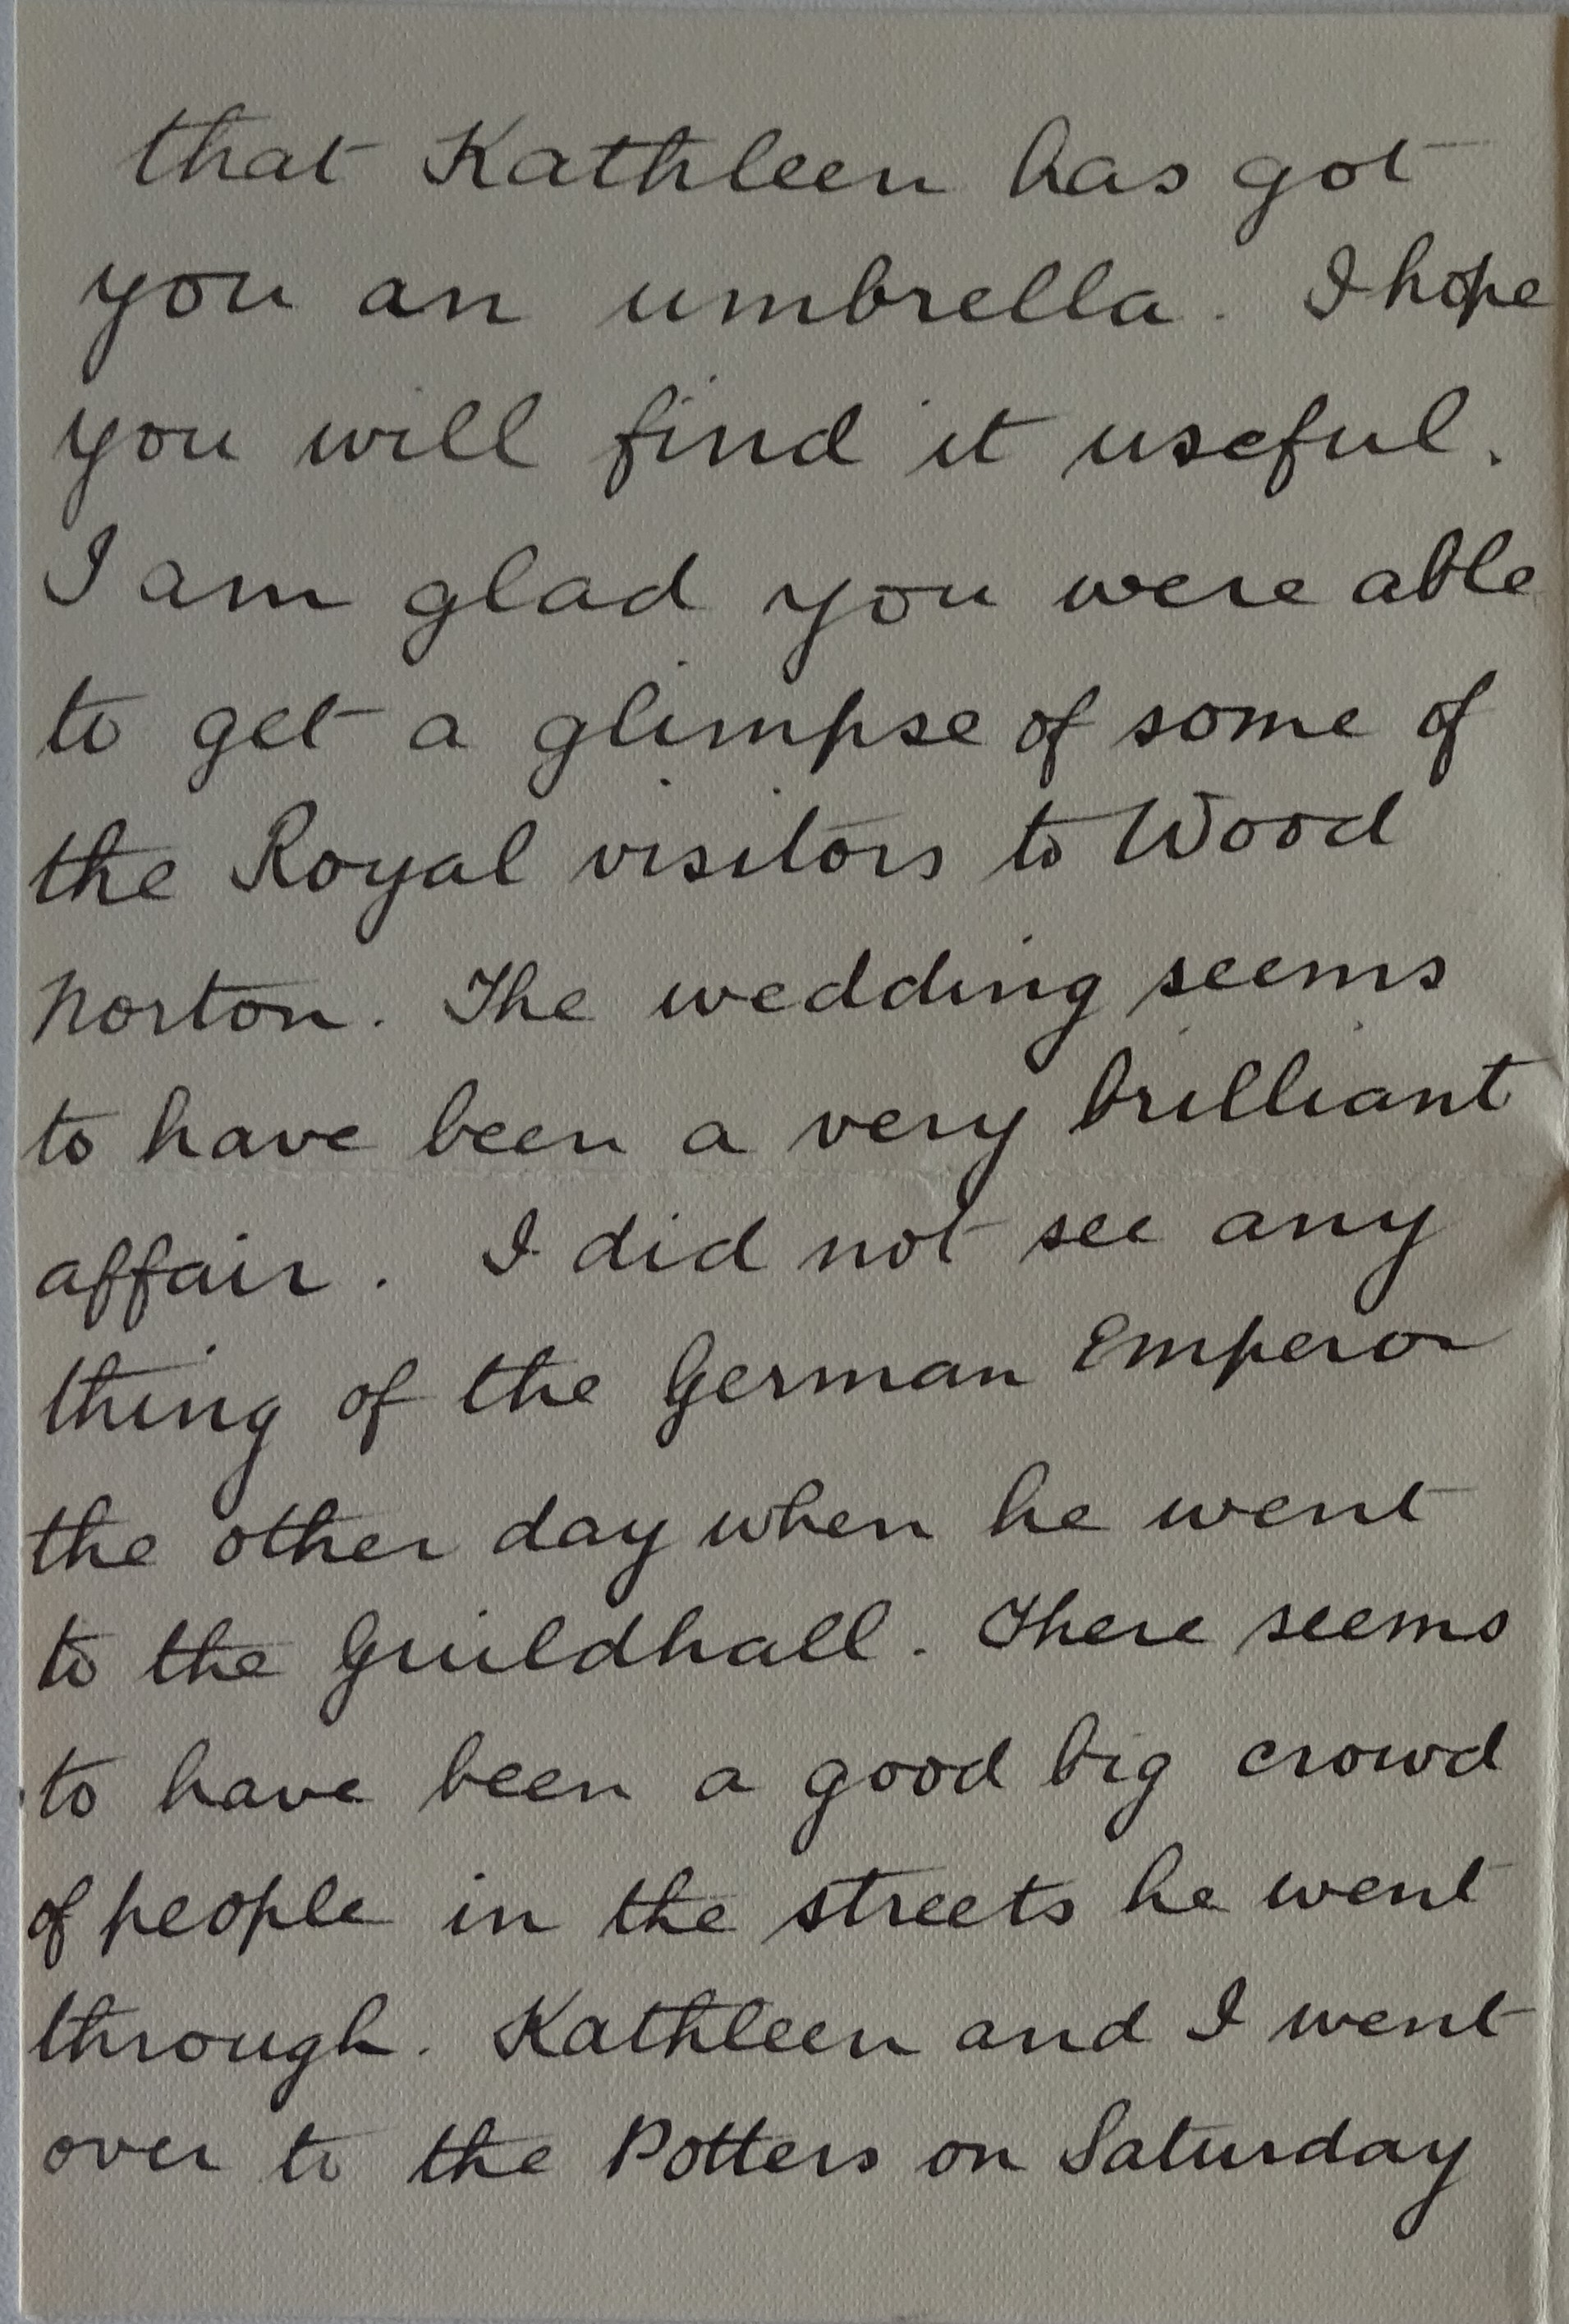 that Kathleen has got
you an umbrella. I hope
you will find it useful.
I am glad you were able
to get a glimpse of some of
the Royal visitors to Wood
Norton. The wedding seems
to have been a very brilliant
affair. I did not see any
thing of the German Emperor
the other day when he went
to the Guildhall. There seems
to have been a good big crowd
of people in the streets he went
through. Kathleen and I went
over to the Potters on Saturday